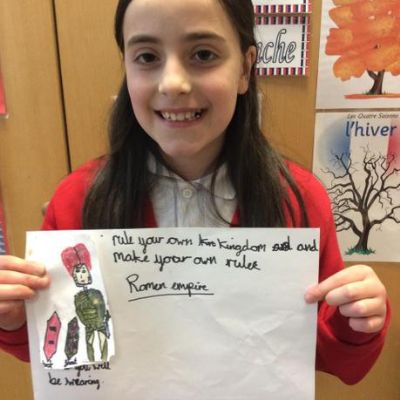 nche
Les Quatre Saisons
l'hiver
rule your own Kingdom and
make your own rules
Romen empire
you will
be wearing.